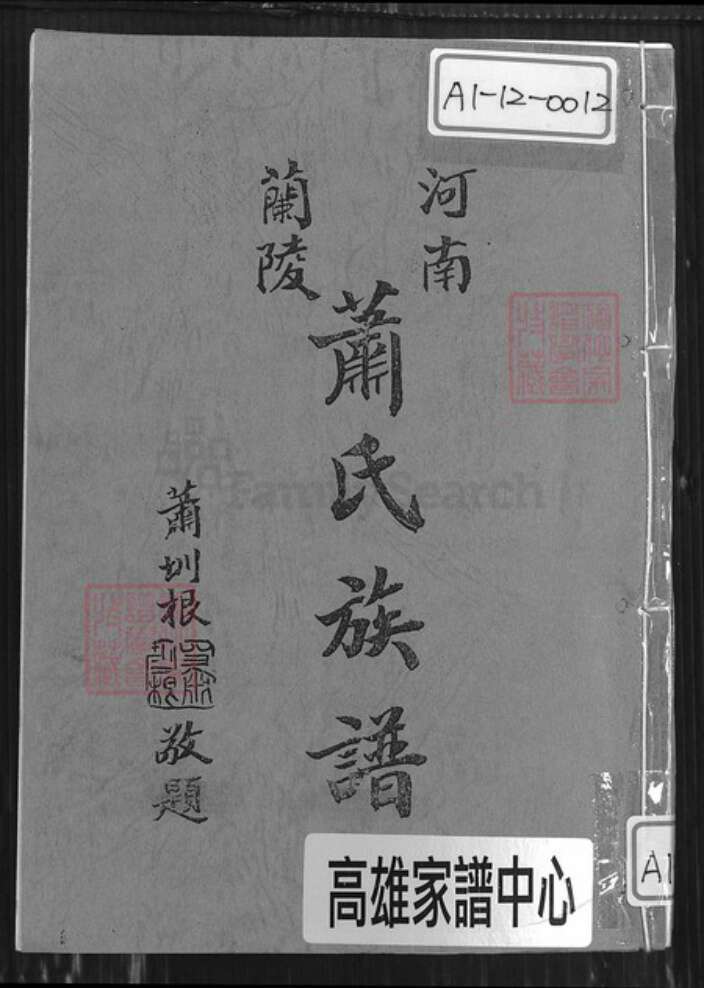 A1-12-0012
河南
蘭陵
蕭氏族譜
蕭圳根
敬題
FamilySearch
高雄家譜中心
A1